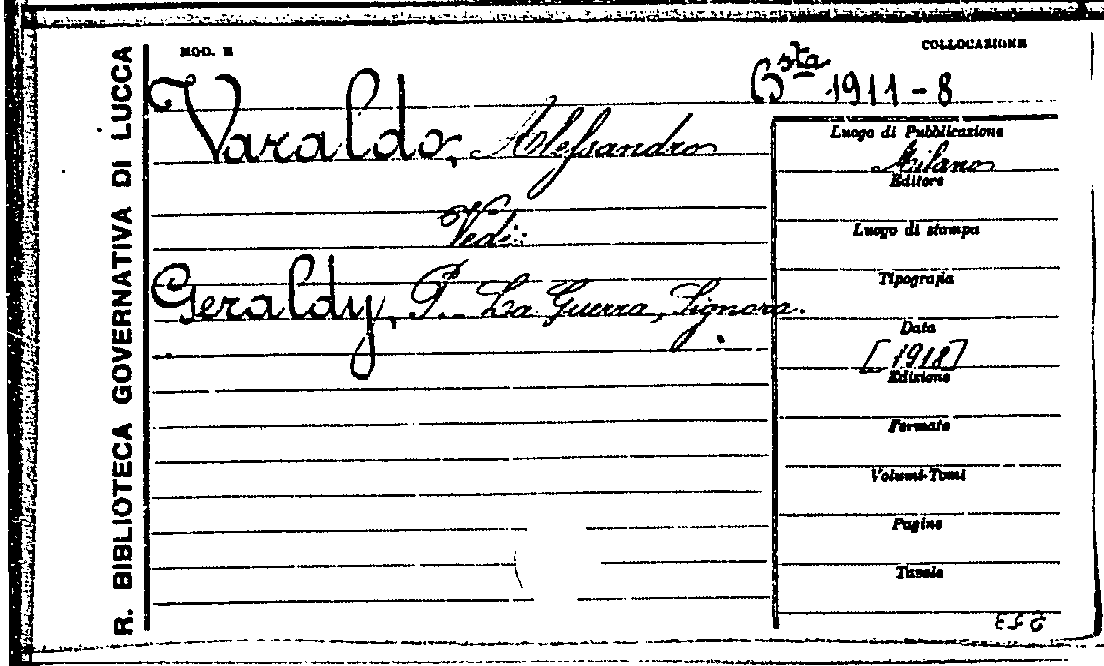 R. BIBLIOTECA GOVERNATIVA DI LUCCA
MOD. E
COLLOCAZIONE
Bsta 1911-8
Varaldo, Alessandro
Vedi:
Geraldy, P. La Guerra, Signora.
Luogo di Pubblicazione
Milano
Editore
Luogo di stampa
Tipografia
Data
[1918]
Edizione
Formato
Volumi-Tomi
Pagine
Tavole